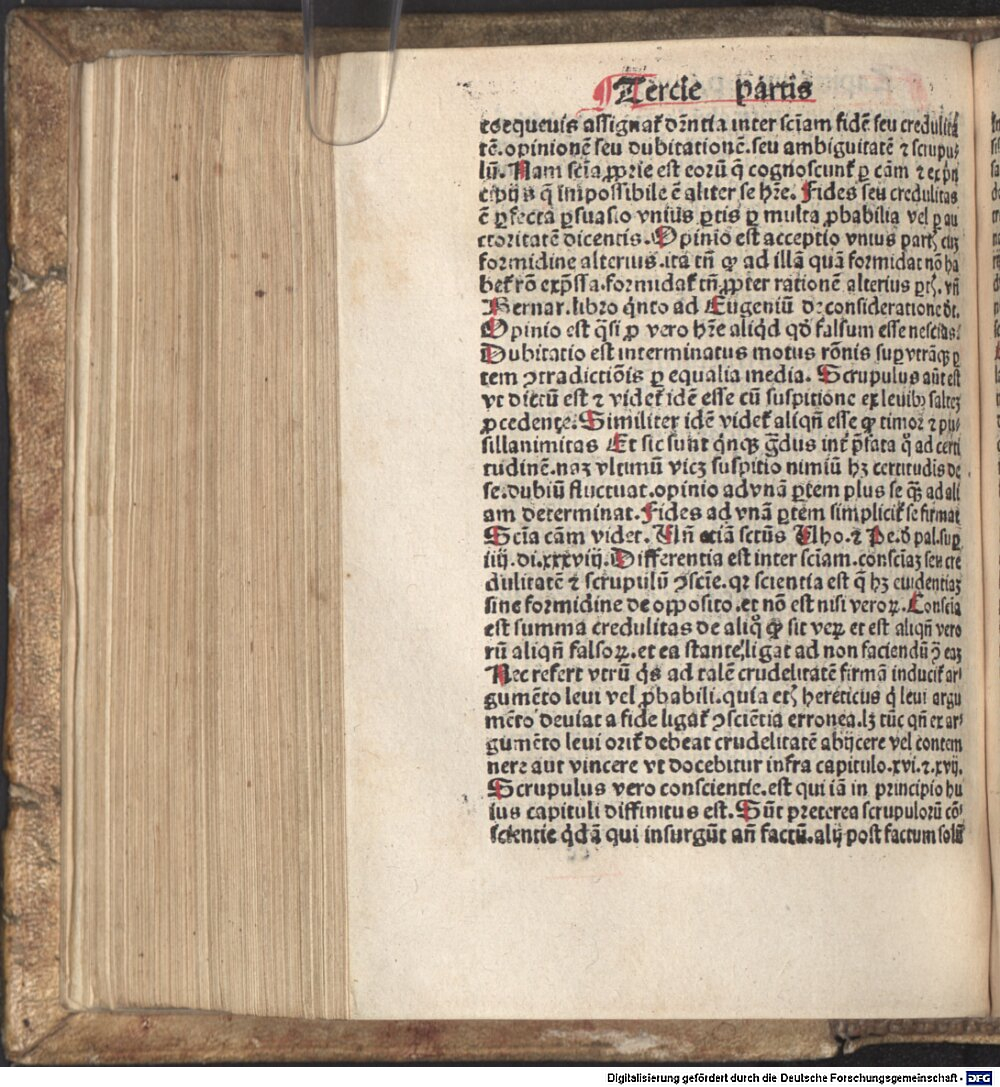 Tercie partis
assignat̉ dr̄ntia inter sciam fidē seu credulita
tē.opinionē seu dubitationē.seu ambiguitatē ⁊ scrupu⸗
lū. Nam scīa ꝓprie est eorū q̄ cognoscunt̉ ꝑ cām ⁊ ex
q̄ impossibile ē aliter se hr̄e. Fides seu credulitas
ē ꝑfecta ꝑsuasio vnius ꝑtis ꝑ multa ꝓbabilia vel ꝑ au
ctoritatē dicentis. Opinio est acceptio vnius cuꝫ
formidine alterius.ita tn̄ ꝙ ad illā quā formidat nō ha
bet̉ rō exp̄ssa.formidat̉ tn̄ ꝓpter rationē alterius vn̄
Bernar.libro q̄nto ad Eugeniū de consideratione
Opinio est q̄si ꝓ vero hr̄e aliq̇d qd̓ falsum esse nescias.
Dubitatio est interminatus motus rōnis suꝑ vtrāqꝫ ꝑ
tem ꝯtradictiōis ꝑ equalia media. Scrupulus aūt est
vt dictū est ⁊ videt̉ idē esse cū suspitione ex leuibꝰ salteꝫ
ꝓcedente. Similiter idē videt̉ aliqn̄ esse ꝙ timor ⁊ pu⸗
sillanimitas Et sic sunt q̄nqꝫ ḡdus int̉ p̄fata ad certi
tudinē.naꝫ vltimū vicꝫ suspitio nimiū hꝫ certitudis de
se.dubiū fluctuat.opinio ad vnā ꝑtem plus se ad ali
am determinat. Fides ad vnā ꝑtem simplicit̉ se firmat
Scīa cām videt. etiā scd̄s Tho. ⁊ Pe. pal.suꝑ
iiij.di.xxxviij. Differentia est inter sciam.consciaꝫ seu cre
dulitatē ⁊ scrupulū ꝯscīe. qꝛ scientia est q̄ hꝫ euidentiaꝫ
sine formidine de opposito.et nō est nisi veroꝝ. Conscīa
est summa credulitas de aliq̊ ꝙ sit veꝝ et est aliqn̄ vero
rū aliqn̄ falsoꝝ.et ea stante ligat ad non faciendū ꝯ eaꝫ
Nec refert vtrū q̇s ad talē crudelitatē firmā inducit̉ ar⸗
gumēto leui vel ꝓbabili.quia hereticus q̇ leui argu
mēto deuiat a fide ligat̉ ꝯsciētia erronea.lꝫ tūc qn̄ ex ar⸗
gumēto leui orit̉ debeat crudelitatē abijcere vel contem
nere aut vincere vt docebitur infra capitulo.xvi.⁊.xvij.
Scrupulus vero conscientie.est qui iā in principio hu
ius capituli diffinitus est. Sūt preterea scrupuloꝝ cō⸗
scientie q̇dā qui insurgūt an̄ factū.alij post factum